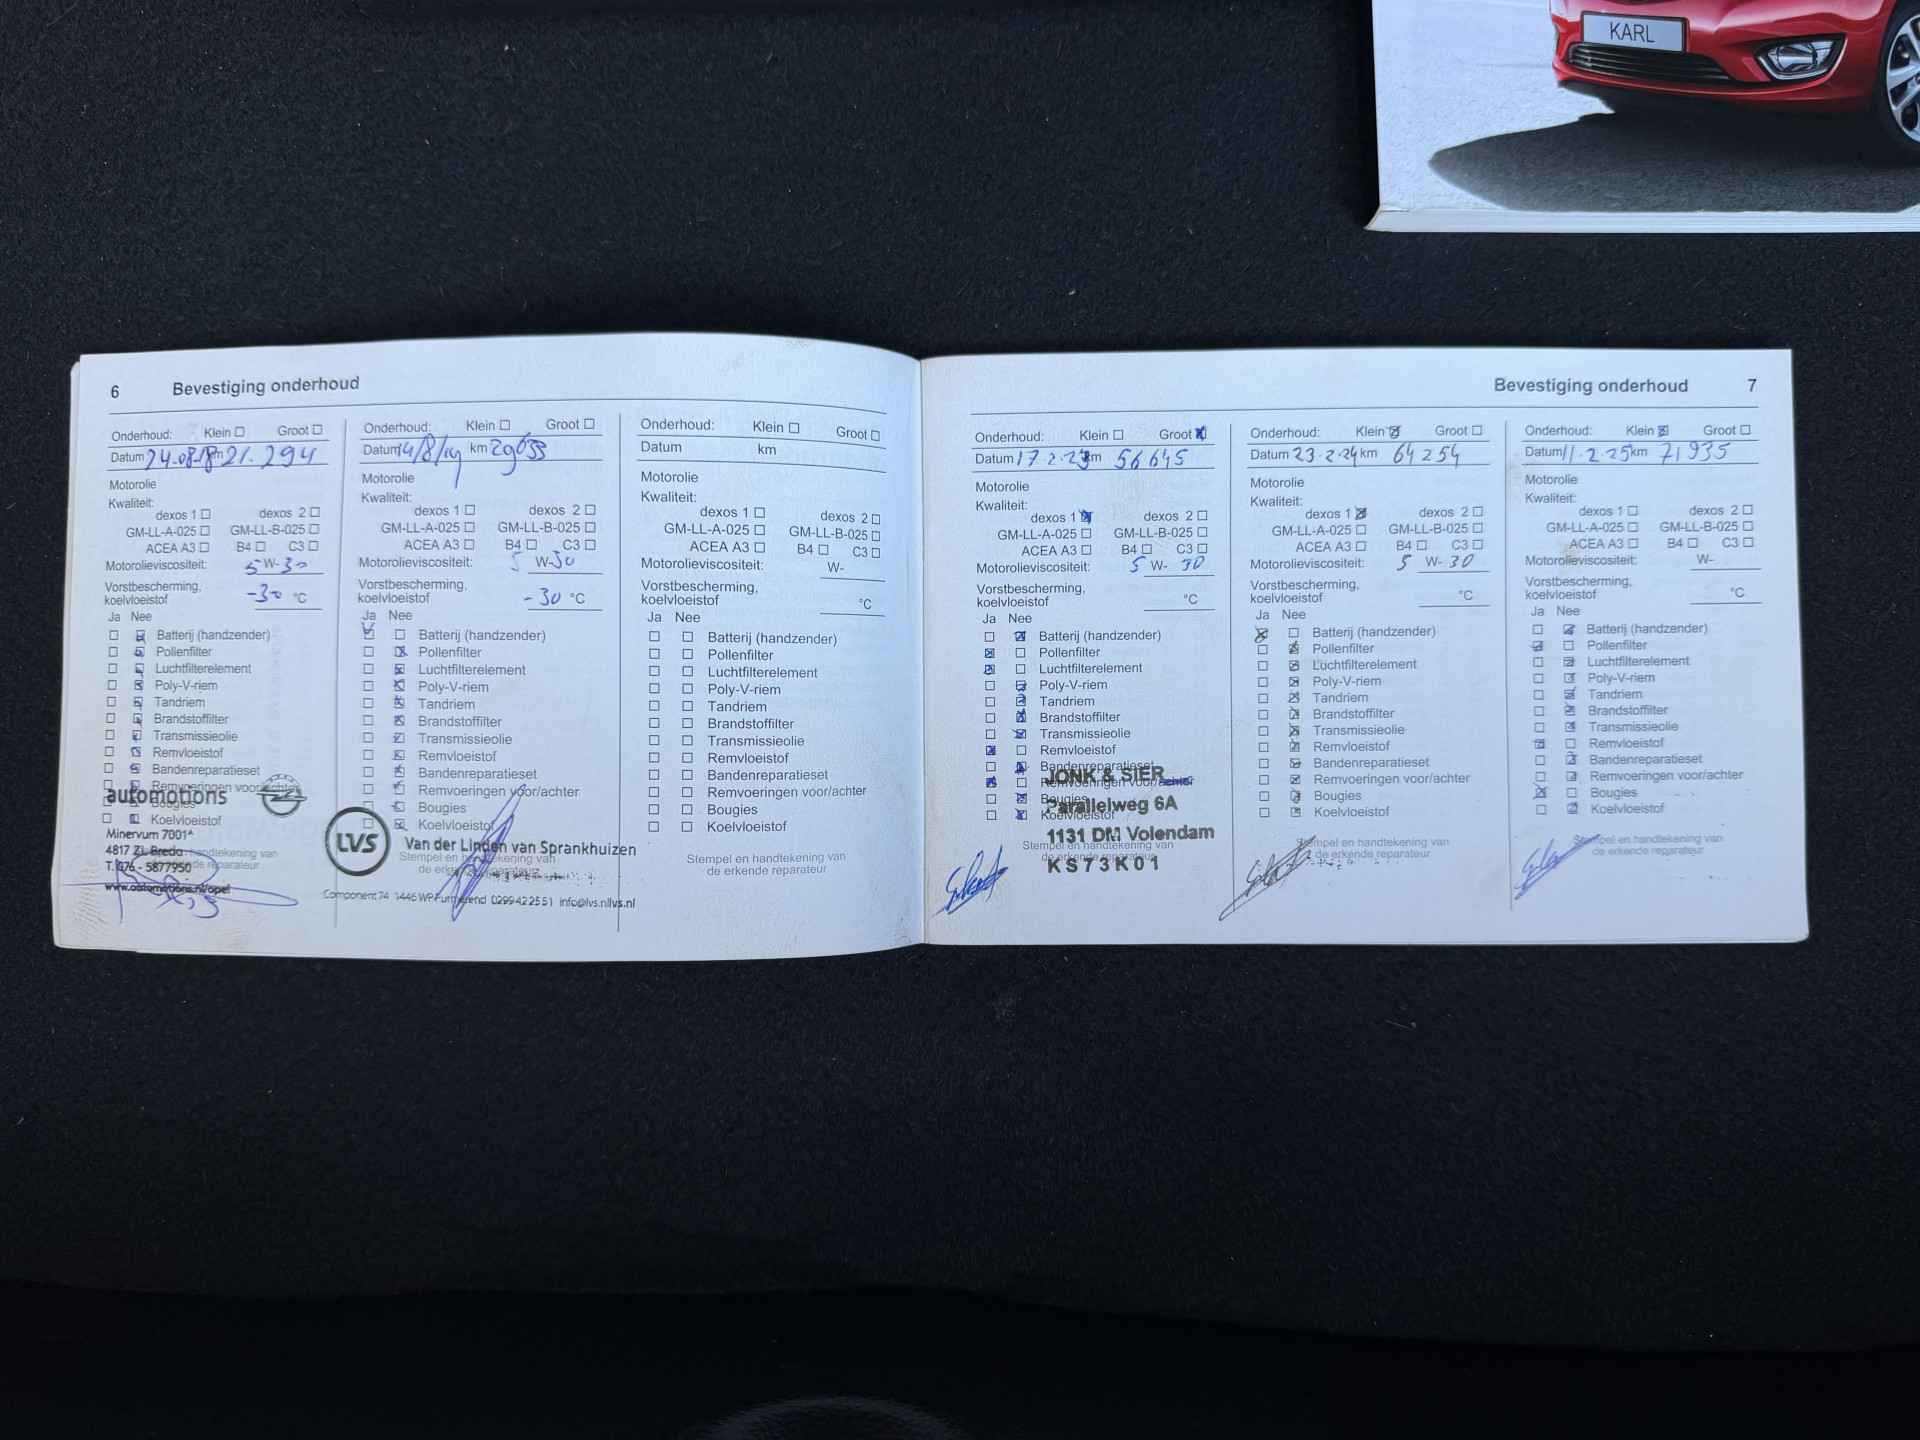 KARL
6 Bevestiging onderhoud
Onderhoud: Klein ☐ Groot ☐
Datum 24-08-18 km 21.294
Motorolie
Kwaliteit:
dexos 1 ☐ dexos 2 ☐
GM-LL-A-025 ☐ GM-LL-B-025 ☐
ACEA A3 ☐ B4 ☐ C3 ☐
Motorolieviscositeit: 5 W-30
Vorstbescherming,
koelvloeistof -30 °C
Ja Nee
☐ ☒ Batterij (handzender)
☐ ☒ Pollenfilter
☐ ☒ Luchtfilterelement
☐ ☒ Poly-V-riem
☐ ☒ Tandriem
☐ ☒ Brandstoffilter
☐ ☒ Transmissieolie
☐ ☒ Remvloeistof
☐ ☒ Bandenreparatieset
☐ ☒ Remvoeringen voor/achter
☐ ☒ Bougies
☐ ☒ Koelvloeistof
automotions
Minervum 7001ᴬ
4817 ZL Breda
T. 076 - 5877950
www.automotions.nl/opel
handtekening van
de reparateur
Onderhoud: Klein ☐ Groot ☐
Datum 14/8/19 km 29633
Motorolie
Kwaliteit:
dexos 1 ☐ dexos 2 ☐
GM-LL-A-025 ☐ GM-LL-B-025 ☐
ACEA A3 ☐ B4 ☐ C3 ☐
Motorolieviscositeit: 5 W-30
Vorstbescherming,
koelvloeistof -30 °C
Ja Nee
☒ ☐ Batterij (handzender)
☐ ☒ Pollenfilter
☐ ☒ Luchtfilterelement
☐ ☒ Poly-V-riem
☐ ☒ Tandriem
☐ ☒ Brandstoffilter
☐ ☒ Transmissieolie
☐ ☒ Remvloeistof
☐ ☒ Bandenreparatieset
☐ ☒ Remvoeringen voor/achter
☐ ☒ Bougies
☐ ☒ Koelvloeistof
LVS Van der Linden van Sprankhuizen
Stempel en handtekening van
de erkende reparateur
Component 74 1446 WP Purmerend 0299 422551 info@lvs.nl lvs.nl
Onderhoud: Klein ☐ Groot ☐
Datum km
Motorolie
Kwaliteit:
dexos 1 ☐ dexos 2 ☐
GM-LL-A-025 ☐ GM-LL-B-025 ☐
ACEA A3 ☐ B4 ☐ C3 ☐
Motorolieviscositeit: W-
Vorstbescherming,
koelvloeistof °C
Ja Nee
☐ ☐ Batterij (handzender)
☐ ☐ Pollenfilter
☐ ☐ Luchtfilterelement
☐ ☐ Poly-V-riem
☐ ☐ Tandriem
☐ ☐ Brandstoffilter
☐ ☐ Transmissieolie
☐ ☐ Remvloeistof
☐ ☐ Bandenreparatieset
☐ ☐ Remvoeringen voor/achter
☐ ☐ Bougies
☐ ☐ Koelvloeistof
Stempel en handtekening van
de erkende reparateur
Bevestiging onderhoud 7
Onderhoud: Klein ☐ Groot ☒
Datum 17-2-23 km 56645
Motorolie
Kwaliteit:
dexos 1 ☒ dexos 2 ☐
GM-LL-A-025 ☐ GM-LL-B-025 ☐
ACEA A3 ☐ B4 ☐ C3 ☐
Motorolieviscositeit: 5 W- 30
Vorstbescherming,
koelvloeistof °C
Ja Nee
☐ ☒ Batterij (handzender)
☒ ☐ Pollenfilter
☒ ☐ Luchtfilterelement
☐ ☒ Poly-V-riem
☐ ☒ Tandriem
☐ ☒ Brandstoffilter
☐ ☒ Transmissieolie
☒ ☐ Remvloeistof
☐ ☒ Bandenreparatieset
☒ ☐ Remvoeringen voor/achter
☐ ☒ Bougies
☐ ☒ Koelvloeistof
JONK & SIER
Parallelweg 6A
1131 DM Volendam
KS73K01
Stempel en handtekening van
de erkende reparateur
Onderhoud: Klein ☒ Groot ☐
Datum 23-2-24 km 64254
Motorolie
Kwaliteit:
dexos 1 ☒ dexos 2 ☐
GM-LL-A-025 ☐ GM-LL-B-025 ☐
ACEA A3 ☐ B4 ☐ C3 ☐
Motorolieviscositeit: 5 W- 30
Vorstbescherming,
koelvloeistof °C
Ja Nee
☒ ☐ Batterij (handzender)
☐ ☒ Pollenfilter
☐ ☒ Luchtfilterelement
☐ ☒ Poly-V-riem
☐ ☒ Tandriem
☐ ☒ Brandstoffilter
☐ ☒ Transmissieolie
☐ ☒ Remvloeistof
☐ ☒ Bandenreparatieset
☐ ☒ Remvoeringen voor/achter
☐ ☒ Bougies
☐ ☒ Koelvloeistof
Stempel en handtekening van
de erkende reparateur
Onderhoud: Klein ☒ Groot ☐
Datum 11-2-25 km 71935
Motorolie
Kwaliteit:
dexos 1 ☐ dexos 2 ☐
GM-LL-A-025 ☐ GM-LL-B-025 ☐
ACEA A3 ☐ B4 ☐ C3 ☐
Motorolieviscositeit: W-
Vorstbescherming,
koelvloeistof °C
Ja Nee
☐ ☒ Batterij (handzender)
☒ ☐ Pollenfilter
☐ ☒ Luchtfilterelement
☐ ☒ Poly-V-riem
☐ ☒ Tandriem
☐ ☒ Brandstoffilter
☐ ☒ Transmissieolie
☒ ☐ Remvloeistof
☐ ☒ Bandenreparatieset
☐ ☒ Remvoeringen voor/achter
☒ ☐ Bougies
☐ ☒ Koelvloeistof
Stempel en handtekening van
de erkende reparateur